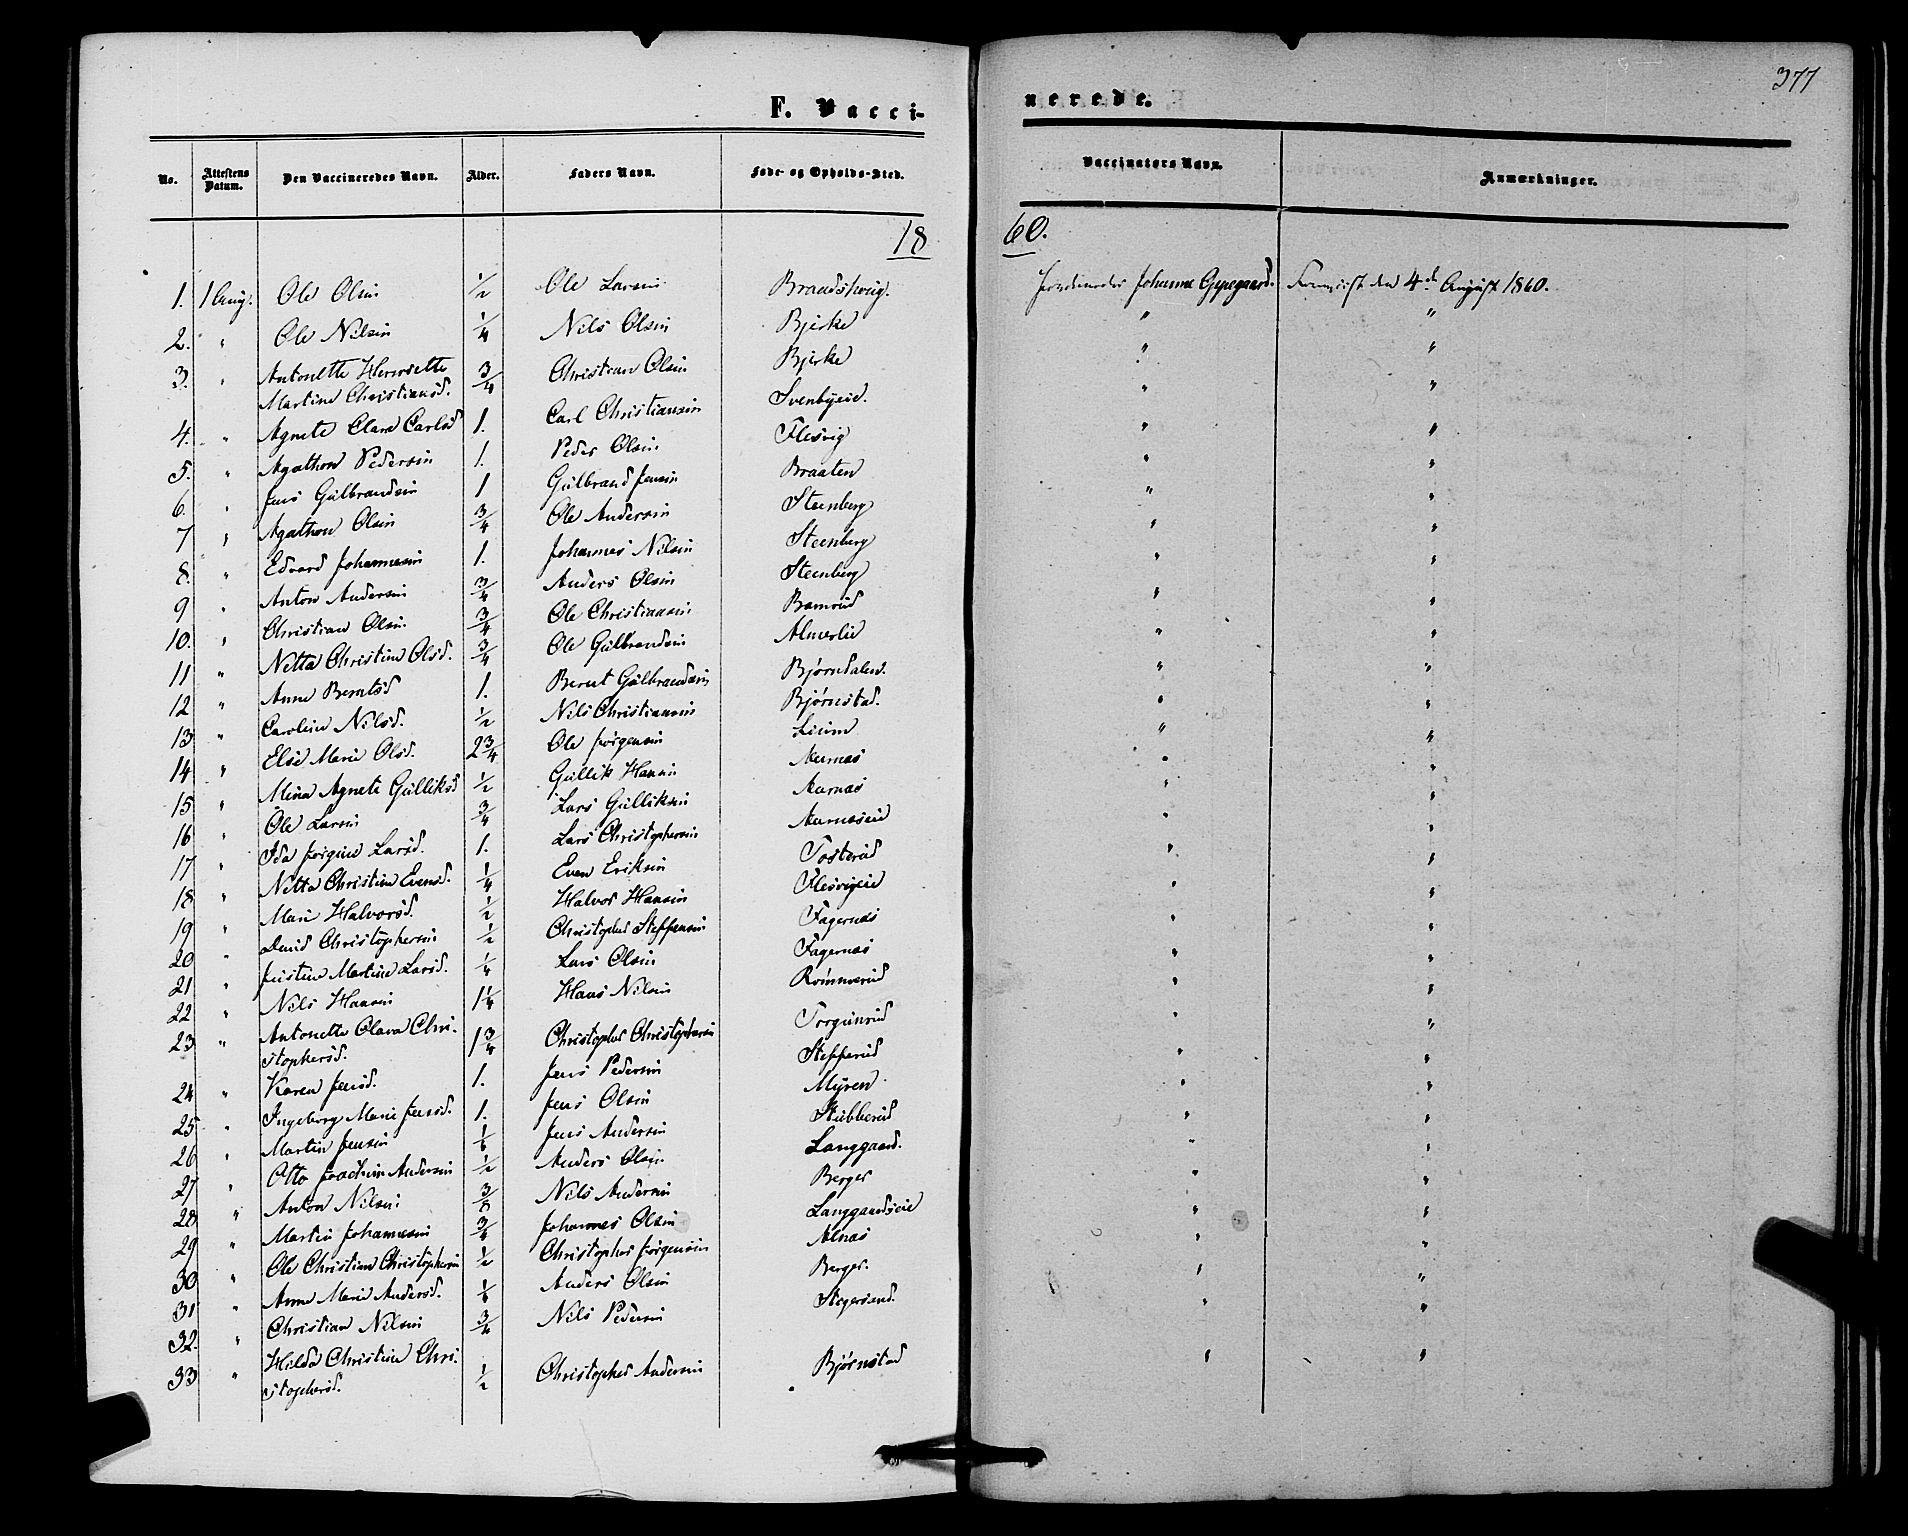 377
F. Vacci-nerede.
No. Attestens Datum. Den Vaccineredes Navn. Alder. Faders Navn. Føde- og Opholds-Sted. Vaccinators Navn. Anmærkninger.
1860.
1. 1 Aug. Ole Olsen 1/2 Ole Larsen Johanne August den 4de August 1860.
2. " Ole Nilsen 1/4 Nils Olsen Bjerke " "
3. " Antonette Henriette Martine Christiansd. 3/4 Christian Olsen Bjerke " "
4. " Agnete Clara Carlsd 1. Carl Christiansen Svenbyeie. " "
5. " Agathon Pedersen 1. Peder Olsen Flesvig " "
6. " Jens Gulbrandsen 1 Gulbrand Jensen Braaten " "
7 " Agathon Olsen 3/4 Ole Andersen Steenberg " "
8. " Edvard Johannesen 1. Johannes Nilsen Steenberg " "
9 " Anton Andersen 3/4 Anders Olsen Steenberg " "
10. " Christian Olsen 3/4 Ole Christiansen Bamrud " "
11 " Netta Christine Olsd. 3/4 Ole Gulbrandsen Almerlie " "
12 " Anne Berntsd 1. Bernt Gulbrandsen Bjørndalen. " "
13 " Caroline Nilsd. 1/2 Nils Christiansen Bjørnstad. " "
14 " Else Marie Olsd. 2 3/4 Ole Jørgensen " "
15 " Mina Agnete Gulliksd 1/2 Gullik Hansen Aurnæs " "
16 " Ole Larsen 3/4 Lars Gulliksen Aurnæs " "
17 " Ida Jørgine Larsd. 1. Lars Christophersen Aurnæseie " "
18 " Netta Christine Evensd. 1/4 Even Eriksen Tosterud " "
19 " Mari Halvorsd. 1/2 Halvor Hansen Flesvigeie " "
20 " David Christophersen 1/2 Christopher Steffensen Fagernæs " "
21 " Justine Martine Larsd. 1/4 Lars Olsen Fagernæs " "
22 " Nils Hansen 1 1/4 Hans Nilsen " "
23 " Antonette Olava Christophersd. 1 3/4 Christopher Christophersen Torgunrud " "
24 " Karen Jensd. 1. Jens Pedersen Stefferud " "
25 " Ingeborg Marie Jensd. 1. Jens Olsen Myren. " "
26 " Martin Jensen Jens Andersen Stubberud " "
27 " Otto Joachim Andersen 1/2 Anders Olsen Langgaard. " "
28 " Anton Nilsen 3/8 Nils Andersen Berger " "
29 " Martin Johannesen 3/4 Johannes Olsen Langgaardseie " "
30 " Ole Christian Christophersen 1/2 Christopher Jørgensen Alnæs " "
31 " Anne Marie Andersd. Anders Olsen Berger. " "
32. " Christian Nilsen 3/4 Nils Pedersen " "
33 " Hilda Christine Christophersd. 1/2 Christopher Andersen Bjørnstad " "